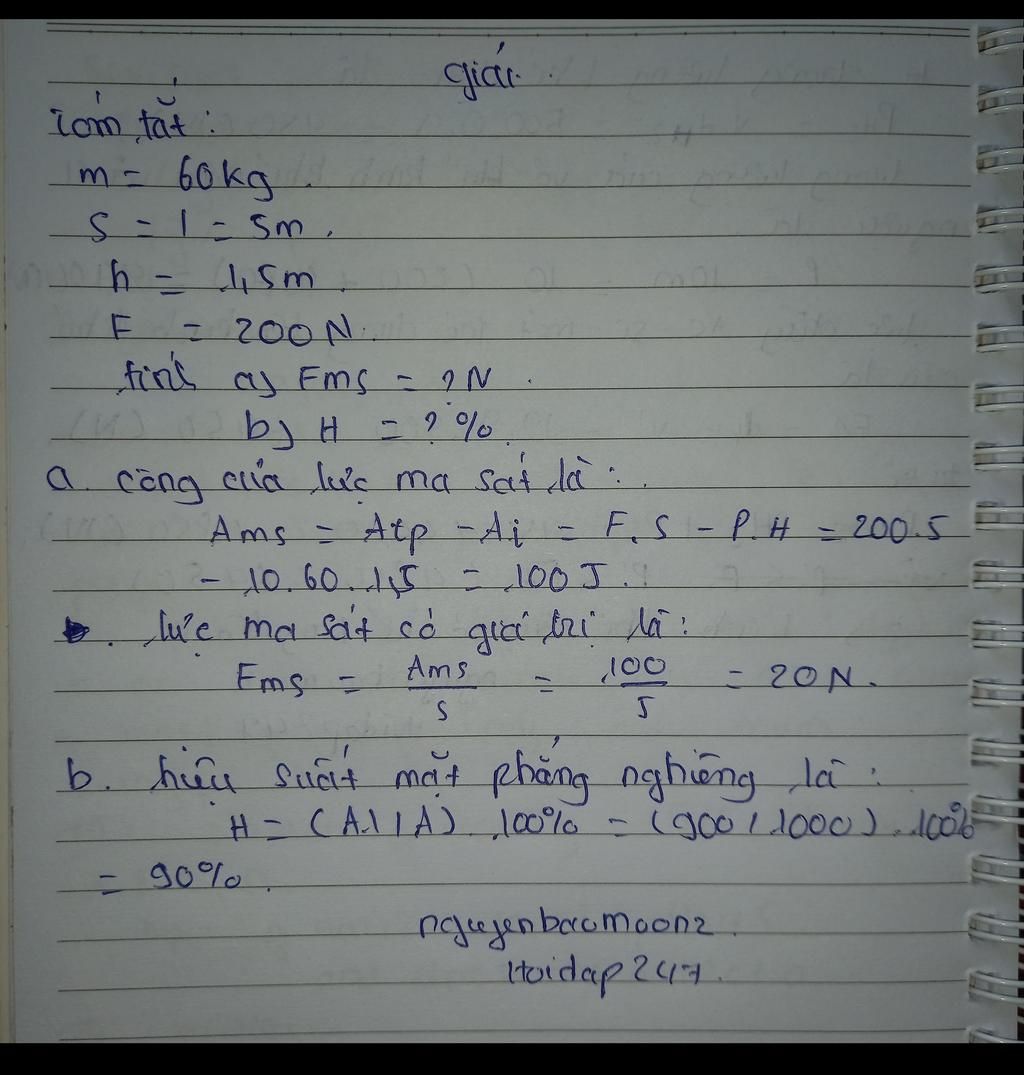 giải.
Tóm tắt:
m = 60kg.
S = l = 5m.
h = 1,5m.
F = 200N.
tính a) Fms = ? N.
b) H = ? %.
a. công của lực ma sát là:
Ams = Atp - Ai = F.S - P.H = 200.5
- 10.60.1,5 = 100J.
. lực ma sát có giá trị là:
Fms = Ams/s = 100/5 = 20N.
b. hiệu suất mặt phẳng nghiêng là:
H = (A1/A).100% = (900/1000).100%
= 90%.
nguyenbaomoon2.
Hoidap247.